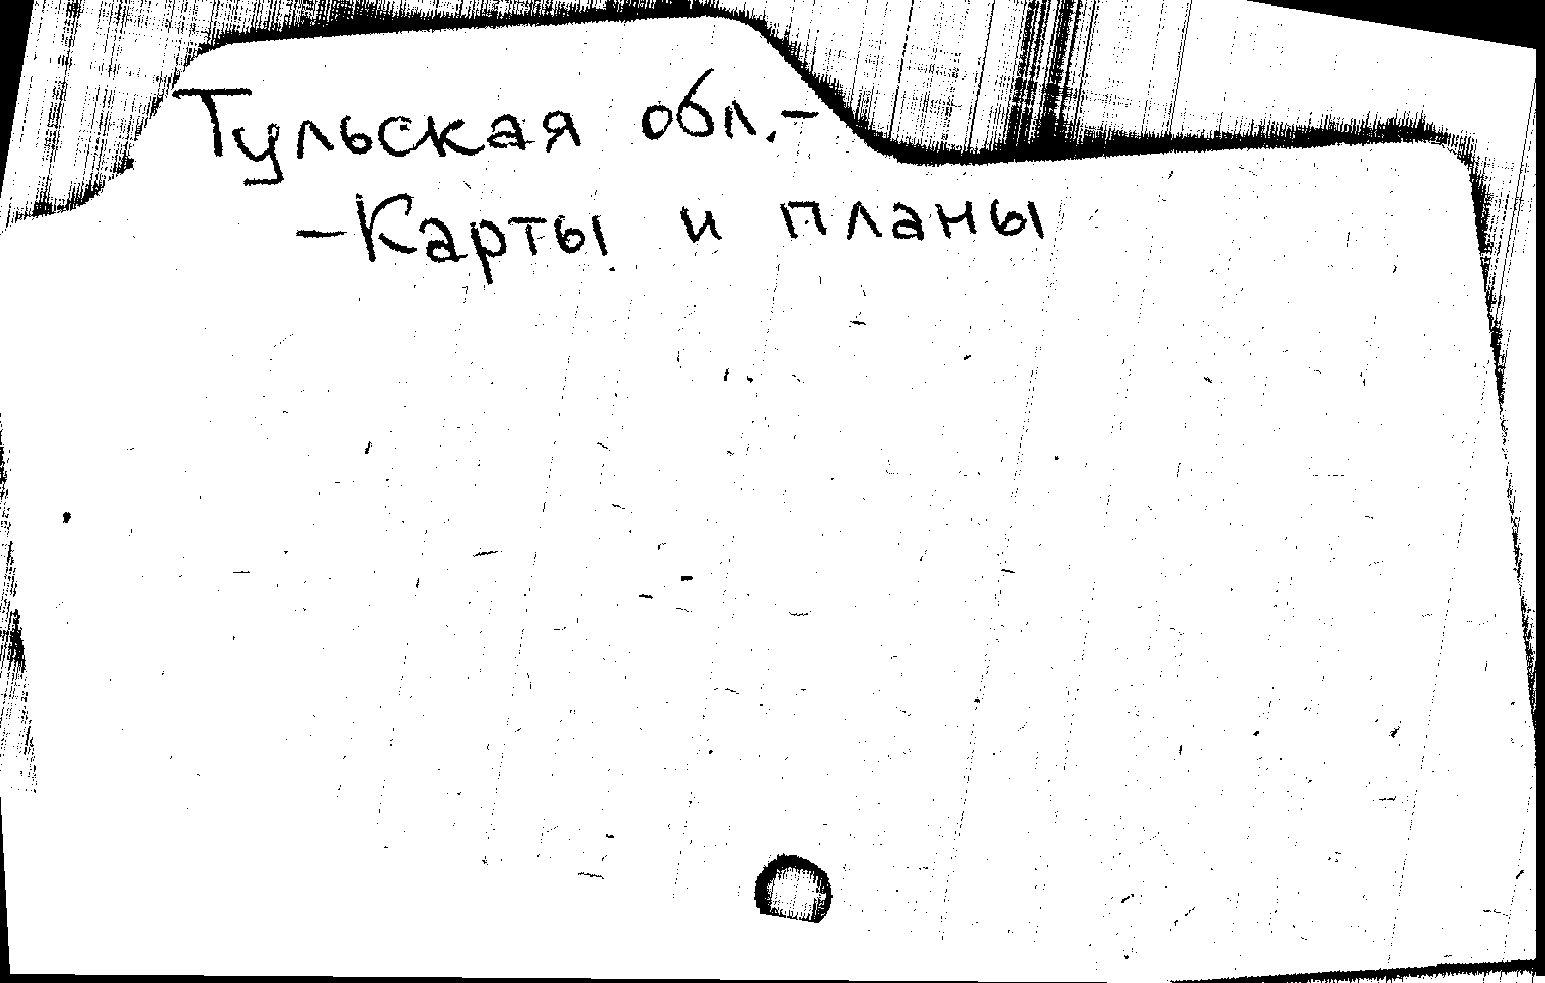 Тульская обл.-
-Карты и планы